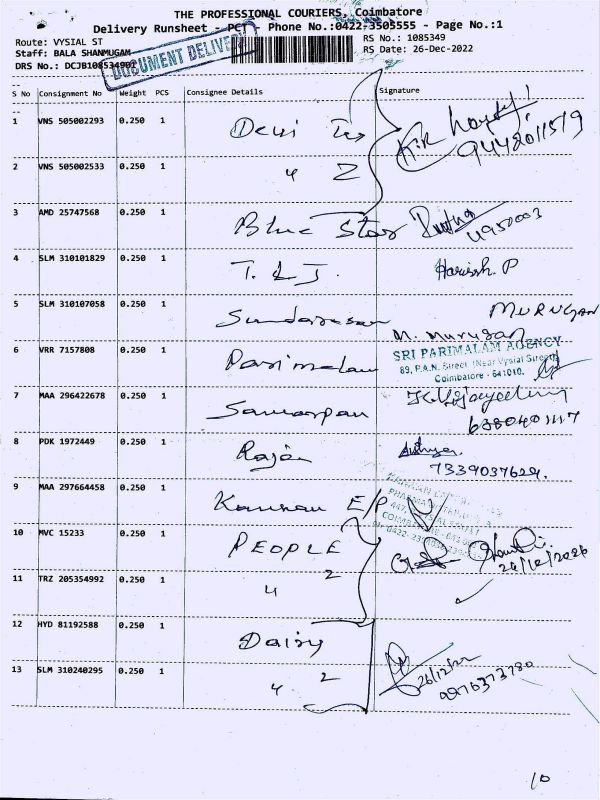 THE PROFESSIONAL COURIERS, Coimbatore
Delivery Runsheet - PCT - Phone No.:0422-3505555 - Page No.:1
Route: VYSIAL ST
RS No.: 1085349
Staff: BALA SHANMUGAM
RS Date: 26-Dec-2022
DRS No.: DCJB108534901
DOCUMENT DELIVERY
S No Consignment No Weight PCS Consignee Details Signature
1 VNS 505002293 0.250 1 Devi Tex 9442011519
2 VNS 505002533 0.250 1 4 2
3 AMD 25747568 0.250 1 Blue Star 4950003
4 SLM 310101829 0.250 1 T. & J. Harish. P
5 SLM 310107058 0.250 1 Sundaresan MURUGAN
M. Murugan
6 VRR 7157808 0.250 1 Parimalam SRI PARIMALAM AGENCY
89, P.A.N. Street (Near Vysial Street)
Coimbatore - 641010.
7 MAA 296422678 0.250 1 Samarpan
6380401117
8 PDK 1972449 0.250 1 Rajan
7339037629.
9 MAA 297664458 0.250 1 Kannan E/P
10 MVC 15233 0.250 1 PEOPLE
26/12/2022
11 TRZ 205354992 0.250 1 4 2
12 HYD 81192588 0.250 1 Dairy
26/12/22
13 SLM 310240295 0.250 1 4 2 9976373780
10